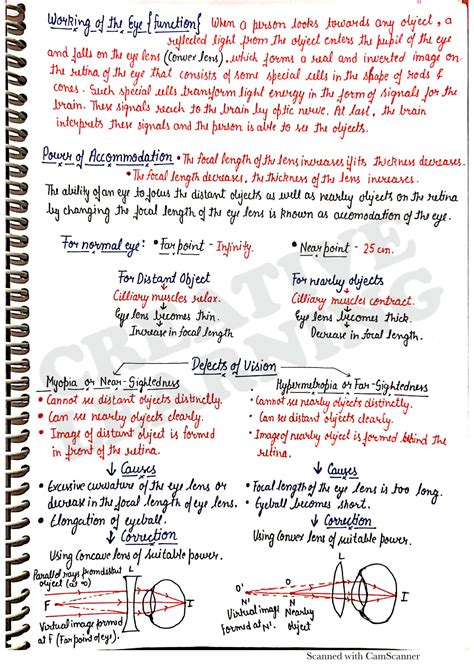 Working of the Eye {function} When a person looks towards any object, a
reflected light from the object enters the pupil of the eye
and falls on the eye lens (Convex lens), which forms a real and inverted image on
the retina of the eye that consists of some special cells in the shape of rods &
cones. Such special cells transform light energy in the form of signals for the
brain. These signals reach to the brain by optic nerve. At last, the brain
interprets these signals and the person is able to see the objects.
Power of Accommodation • The focal length of the lens increases if its thickness decreases.
• The focal length decreases, the thickness of the lens increases.
The ability of an eye to focus the distant objects as well as nearby objects on the retina
by changing the focal length of the eye lens is known as accomodation of the eye.
For normal eye: • Far point - Infinity. • Near point - 25 cm.
For Distant Object
Cilliary muscles relax.
Eye lens becomes thin.
Increase in focal length
For nearby objects
Cilliary muscles contract.
Eye lens becomes thick.
Decrease in focal length.
CREATIVE
LEARNING
Defects of Vision
Myopia or Near-Sightedness
• Cannot see distant objects distinctly.
• Can see nearby objects clearly.
• Image of distant object is formed
in front of the retina.
Causes
• Excessive curvature of the eye lens or
decrease in the focal length of eye lens.
• Elongation of eyeball.
Correction
Using Concave lens of suitable power.
Parallel rays from distant
object (at ∞)
L
F
I
Virtual image formed
at F (Far point of eye).
Hypermetropia or Far-Sightedness
• Cannot see nearby objects distinctly.
• Can see distant objects clearly.
• Image of nearby object is formed behind the
retina.
Causes
• Focal length of the eye lens is too long.
• Eyeball becomes short.
Correction
Using Convex lens of suitable power.
L
O' O
I
N' N
Virtual image Nearby
formed at N'. object
Scanned with CamScanner